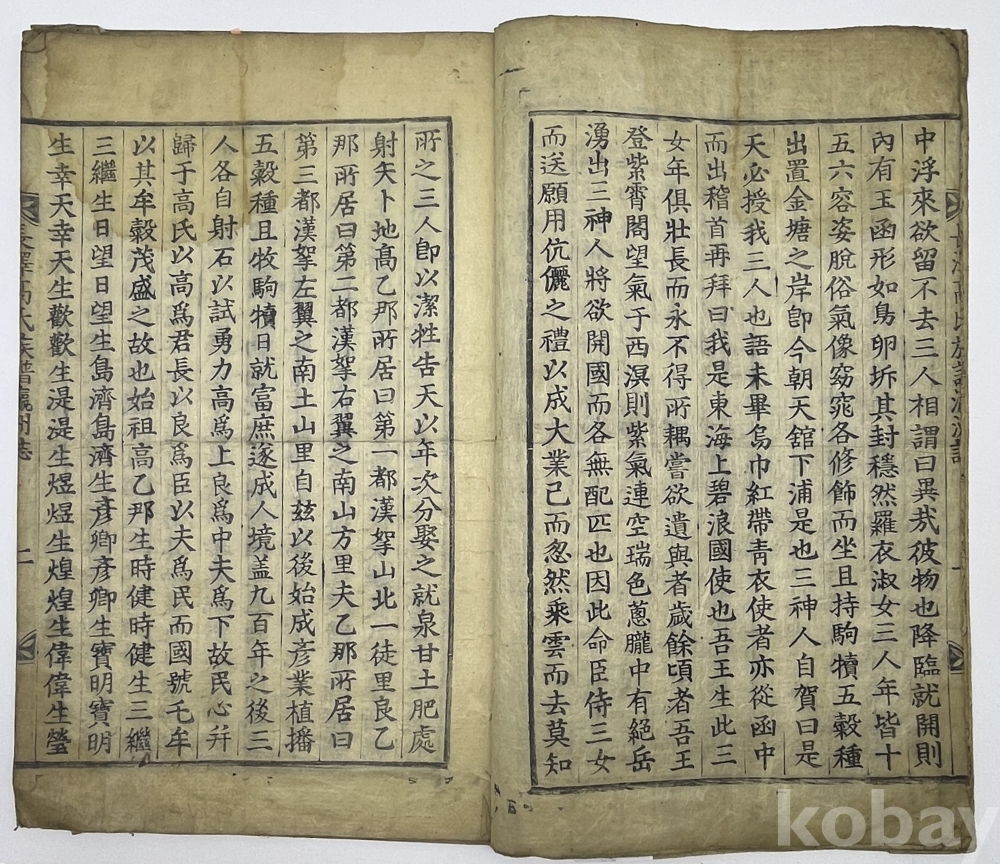 中浮來欲留不去三人相謂曰異㢤彼物也降臨就開則
內有玉函形如鳥卵坼其封穩然羅衣淑女三人年皆十
五六容姿脫俗氣像窈窕各修飾而坐且持駒犢五穀種
出置金塘之岸卽今朝天舘下浦是也三神人自賀曰是
天必授我三人也語未畢烏巾紅帶靑衣使者亦從函中
而出稽首再拜曰我是東海上碧浪國使也吾王生此三
女年俱壯長而永不得所耦嘗欲遺與者歲餘頃者吾王
登紫霄閣望氣于西溟則紫氣連空瑞色蔥朧中有絕岳
湧出三神人將欲開國而各無配匹也因此命臣侍三女
而送願用伉儷之禮以成大業已而忽然乘雲而去莫知
所之三人卽以潔牲告天以年次分娶之就泉甘土肥處
射矢卜地高乙那所居曰第一都漢拏山北一徒里良乙
那所居曰第二都漢拏右翼之南山方里夫乙那所居曰
第三都漢拏左翼之南土山里自玆以後始成彥業植播
五穀種且牧駒犢日就富庶遂成人境盖九百年之後三
人各自射石以試勇力高爲上良爲中夫爲下故民心幷
歸于高氏以高爲君長以良爲臣以夫爲民而國號乇牟
以其牟穀茂盛之故也始祖高乙那生時健時健生三繼
三繼生日望日望生島濟島濟生彥卿彥卿生寶明寶明
生幸天幸天生歡歡生湜湜生煜煜生煌煌生偉偉生瑩
長澤高氏族譜瀛州誌
二
kobay